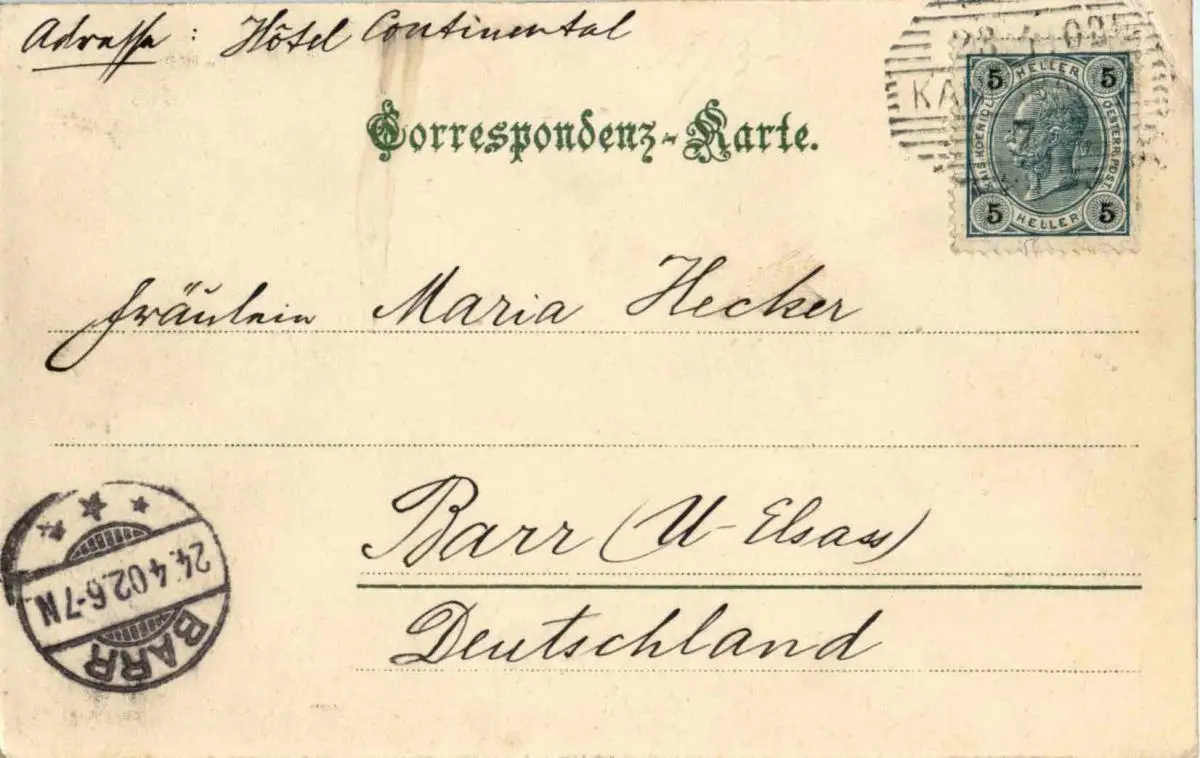 Adresse : Hôtel Continental
Correspondenz-Karte.
23 4 02
KA
5 HELLER 5
KAIS. KOENIGL. OESTERR. POST.
7
5 HELLER 5
Fräulein Maria Hecker
Barr (U-Elsass)
Deutschland
24.4.02.6-7N
BARR